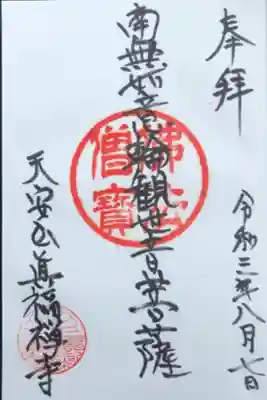 奉拜
令和三年八月七日
南無如意輪観世音菩薩
佛法僧寶
天安山真福禅寺